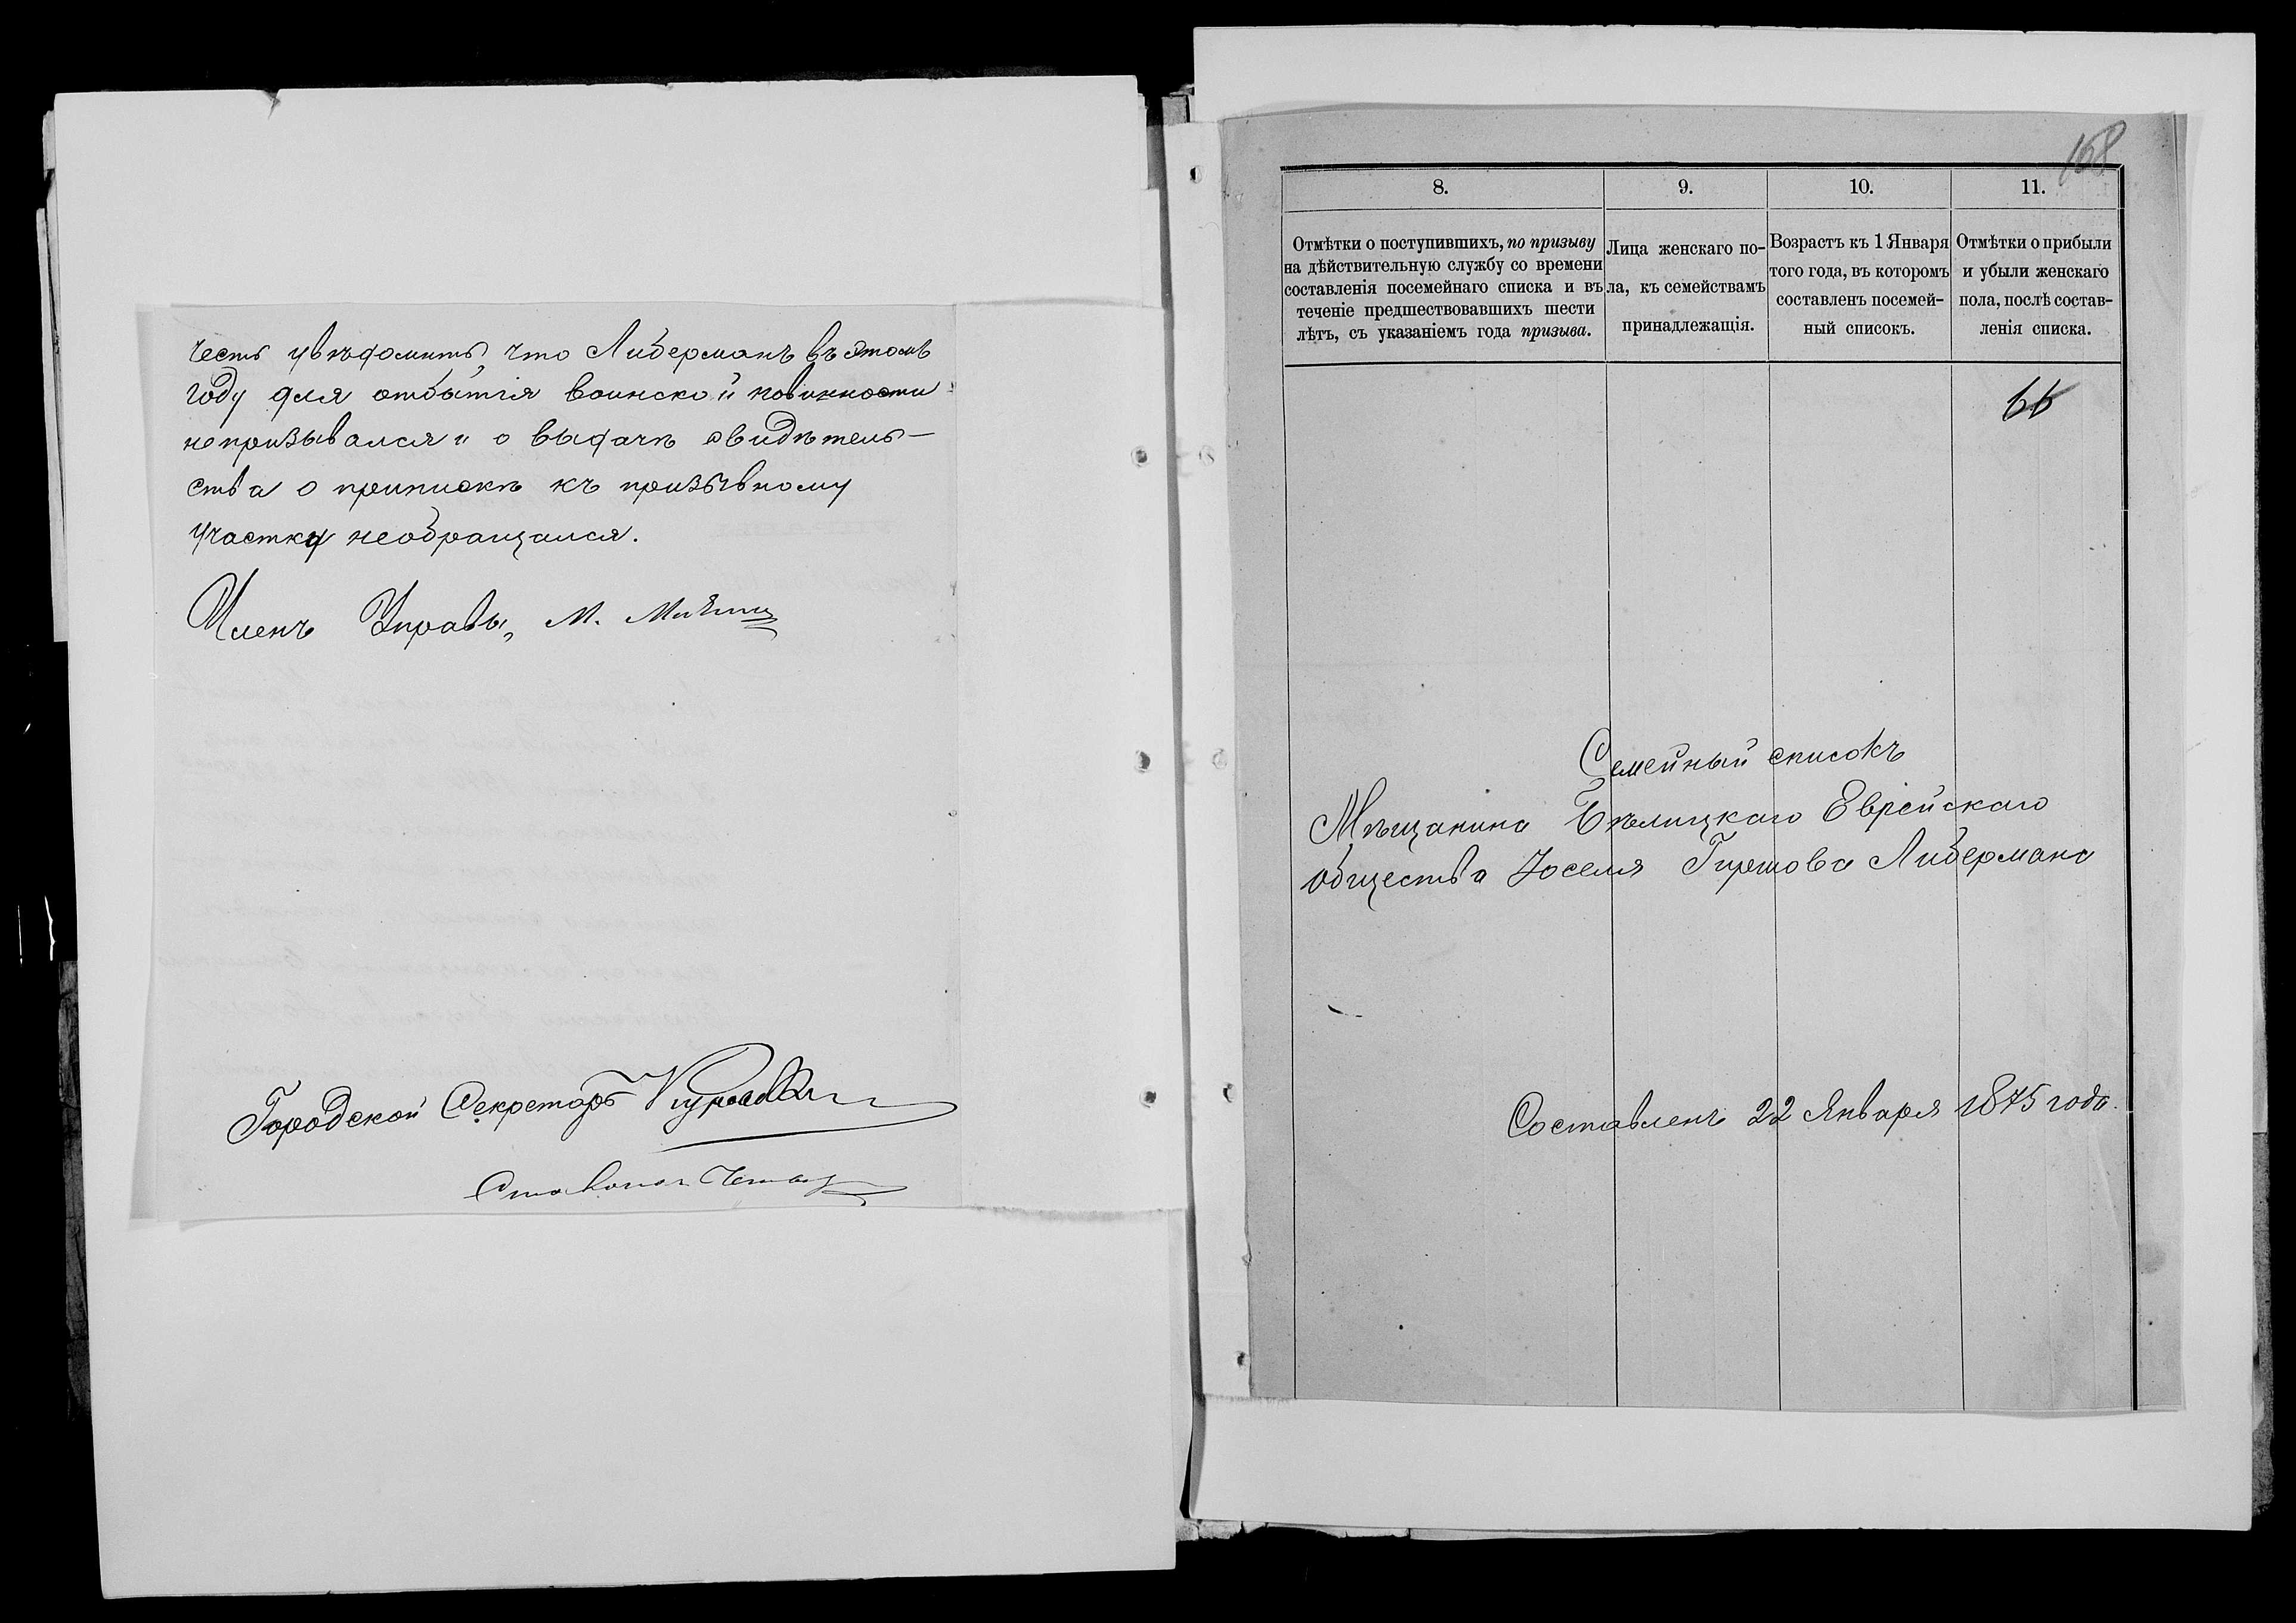 честь увѣдомить, что Либерманъ въ этомъ
году для отбытія воинской повинности
непризывался и о выдачѣ свидѣтель-
ства о припискѣ къ призывному
участку необращался.
Членъ Управы, М.
Городской Секретарь
158
8.
9.
10.
11.
Отмѣтки о поступившихъ, по призыву
на дѣйствительную службу со времени
составленія посемейнаго списка и въ
теченіе предшествовавшихъ шести
лѣтъ, съ указаніемъ года призыва.
Лица женскаго по-
ла, къ семействамъ
принадлежащія.
Возрастъ къ 1 Января
того года, въ которомъ
составленъ посемей-
ный списокъ.
Отмѣтки о прибыли
и убыли женскаго
пола, послѣ состав-
ленія списка.
66
Семейный списокъ
Мѣщанина Бѣлицкаго Еврейскаго
общества Іоселя Гиршова Либермана
Составленъ 22 Января 1875 года.